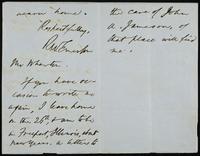 nearer home.
Respectfully,
Mr Wharton.
If you have oc-
casion to write me
again, I leave home
on the 28th & am to be
in Freeport, Illinois, about
new years. A letter to
the care of John
A. Jameson, of
that place will find
me.